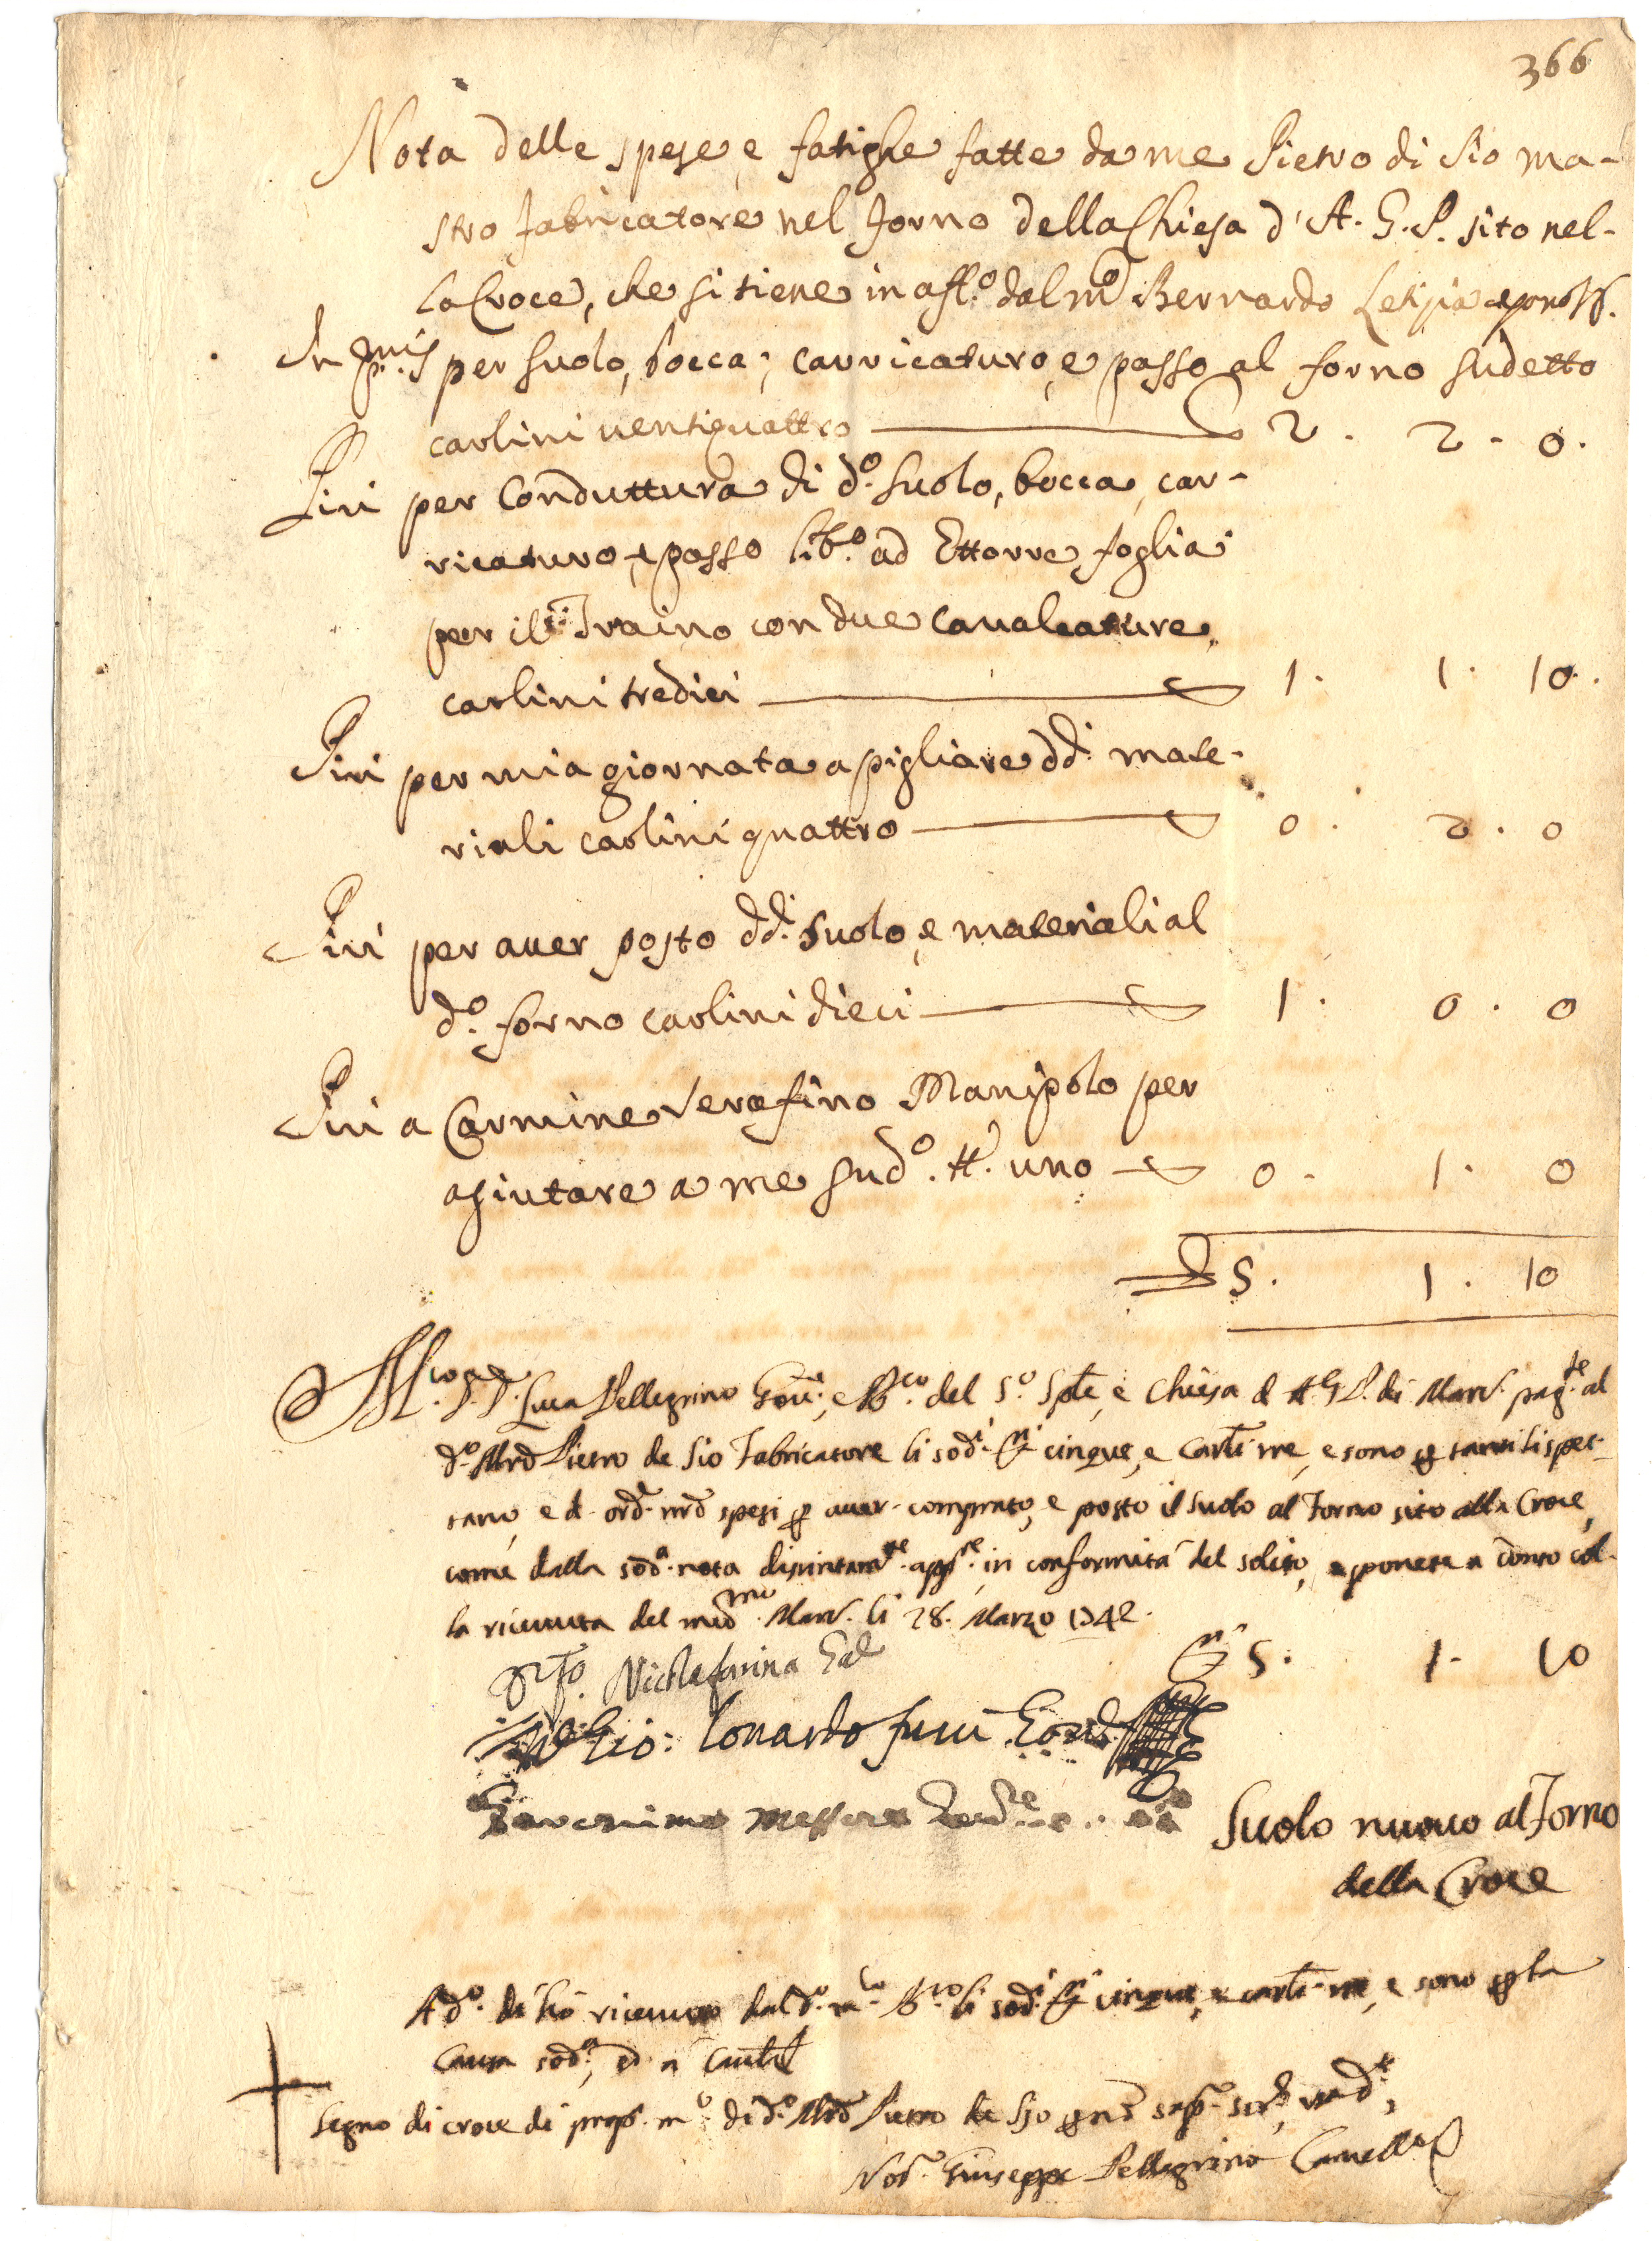 366
Nota delle spese, e fatighe fatte da me Pietro di Sio ma-
stro fabricatore nel forno della Chiesa d'A. G. P. sito nel-
la Croce, che si tiene in aff.o dal m.o Bernardo Letizia
In p.mis per suolo, bocca, carricaturo, e passo al forno sudetto
carlini uentiquattro 2. 2. 0.
Più per Conduttura di d.o suolo, bocca, car-
ricaturo, e passo lib.o ad Ettorre foglia
per il Traino con due caualcature
carlini tredici 1. 1. 10.
Più per mia giornata a pigliare dd.i mate-
riali carlini quattro 0. 2. 0
Più per auer posto dd.i suolo, e materiali al
d.o forno carlini dieci 1. 0. 0
Più a Carmine Serafino Manipolo per
agiutare a me sud.o tt. uno 0. 1. 0
D 5. 1. 10
M.co Luca Pellegrino e B.co del S.o Sple, e Chiesa d A. G. P. di Mard. pag.te al
d.o Mrõ Pietro de Sio Fabricatore li sod.i D.i cinque, e carli. tre, e sono p tanti li spet-
tano, e d ord. nrõ spesi p auer comprato, e posto il suolo al Forno sito alla Croce,
come dalla sod.a nota distintam.te app.re in conformità del solito, e ponete a conto col-
la riceuuta del med.mo Mard. li 28. Marzo 1742.
D.i 5. 1. 10
Nicola farina
Gio: Lonardo
Geronimo Messere
Suolo nuouo al Forno
della Croce
A d.o dì hò riceuuto dal d.o m.co B.co li sod.i D.i cinque, e carli. tre, e sono p la
causa sod.a, ed a cautela
+ Segno di croce di prop.a m.o di d.o Mrõ Pietro de Sio
Not. Giuseppe Pellegrino